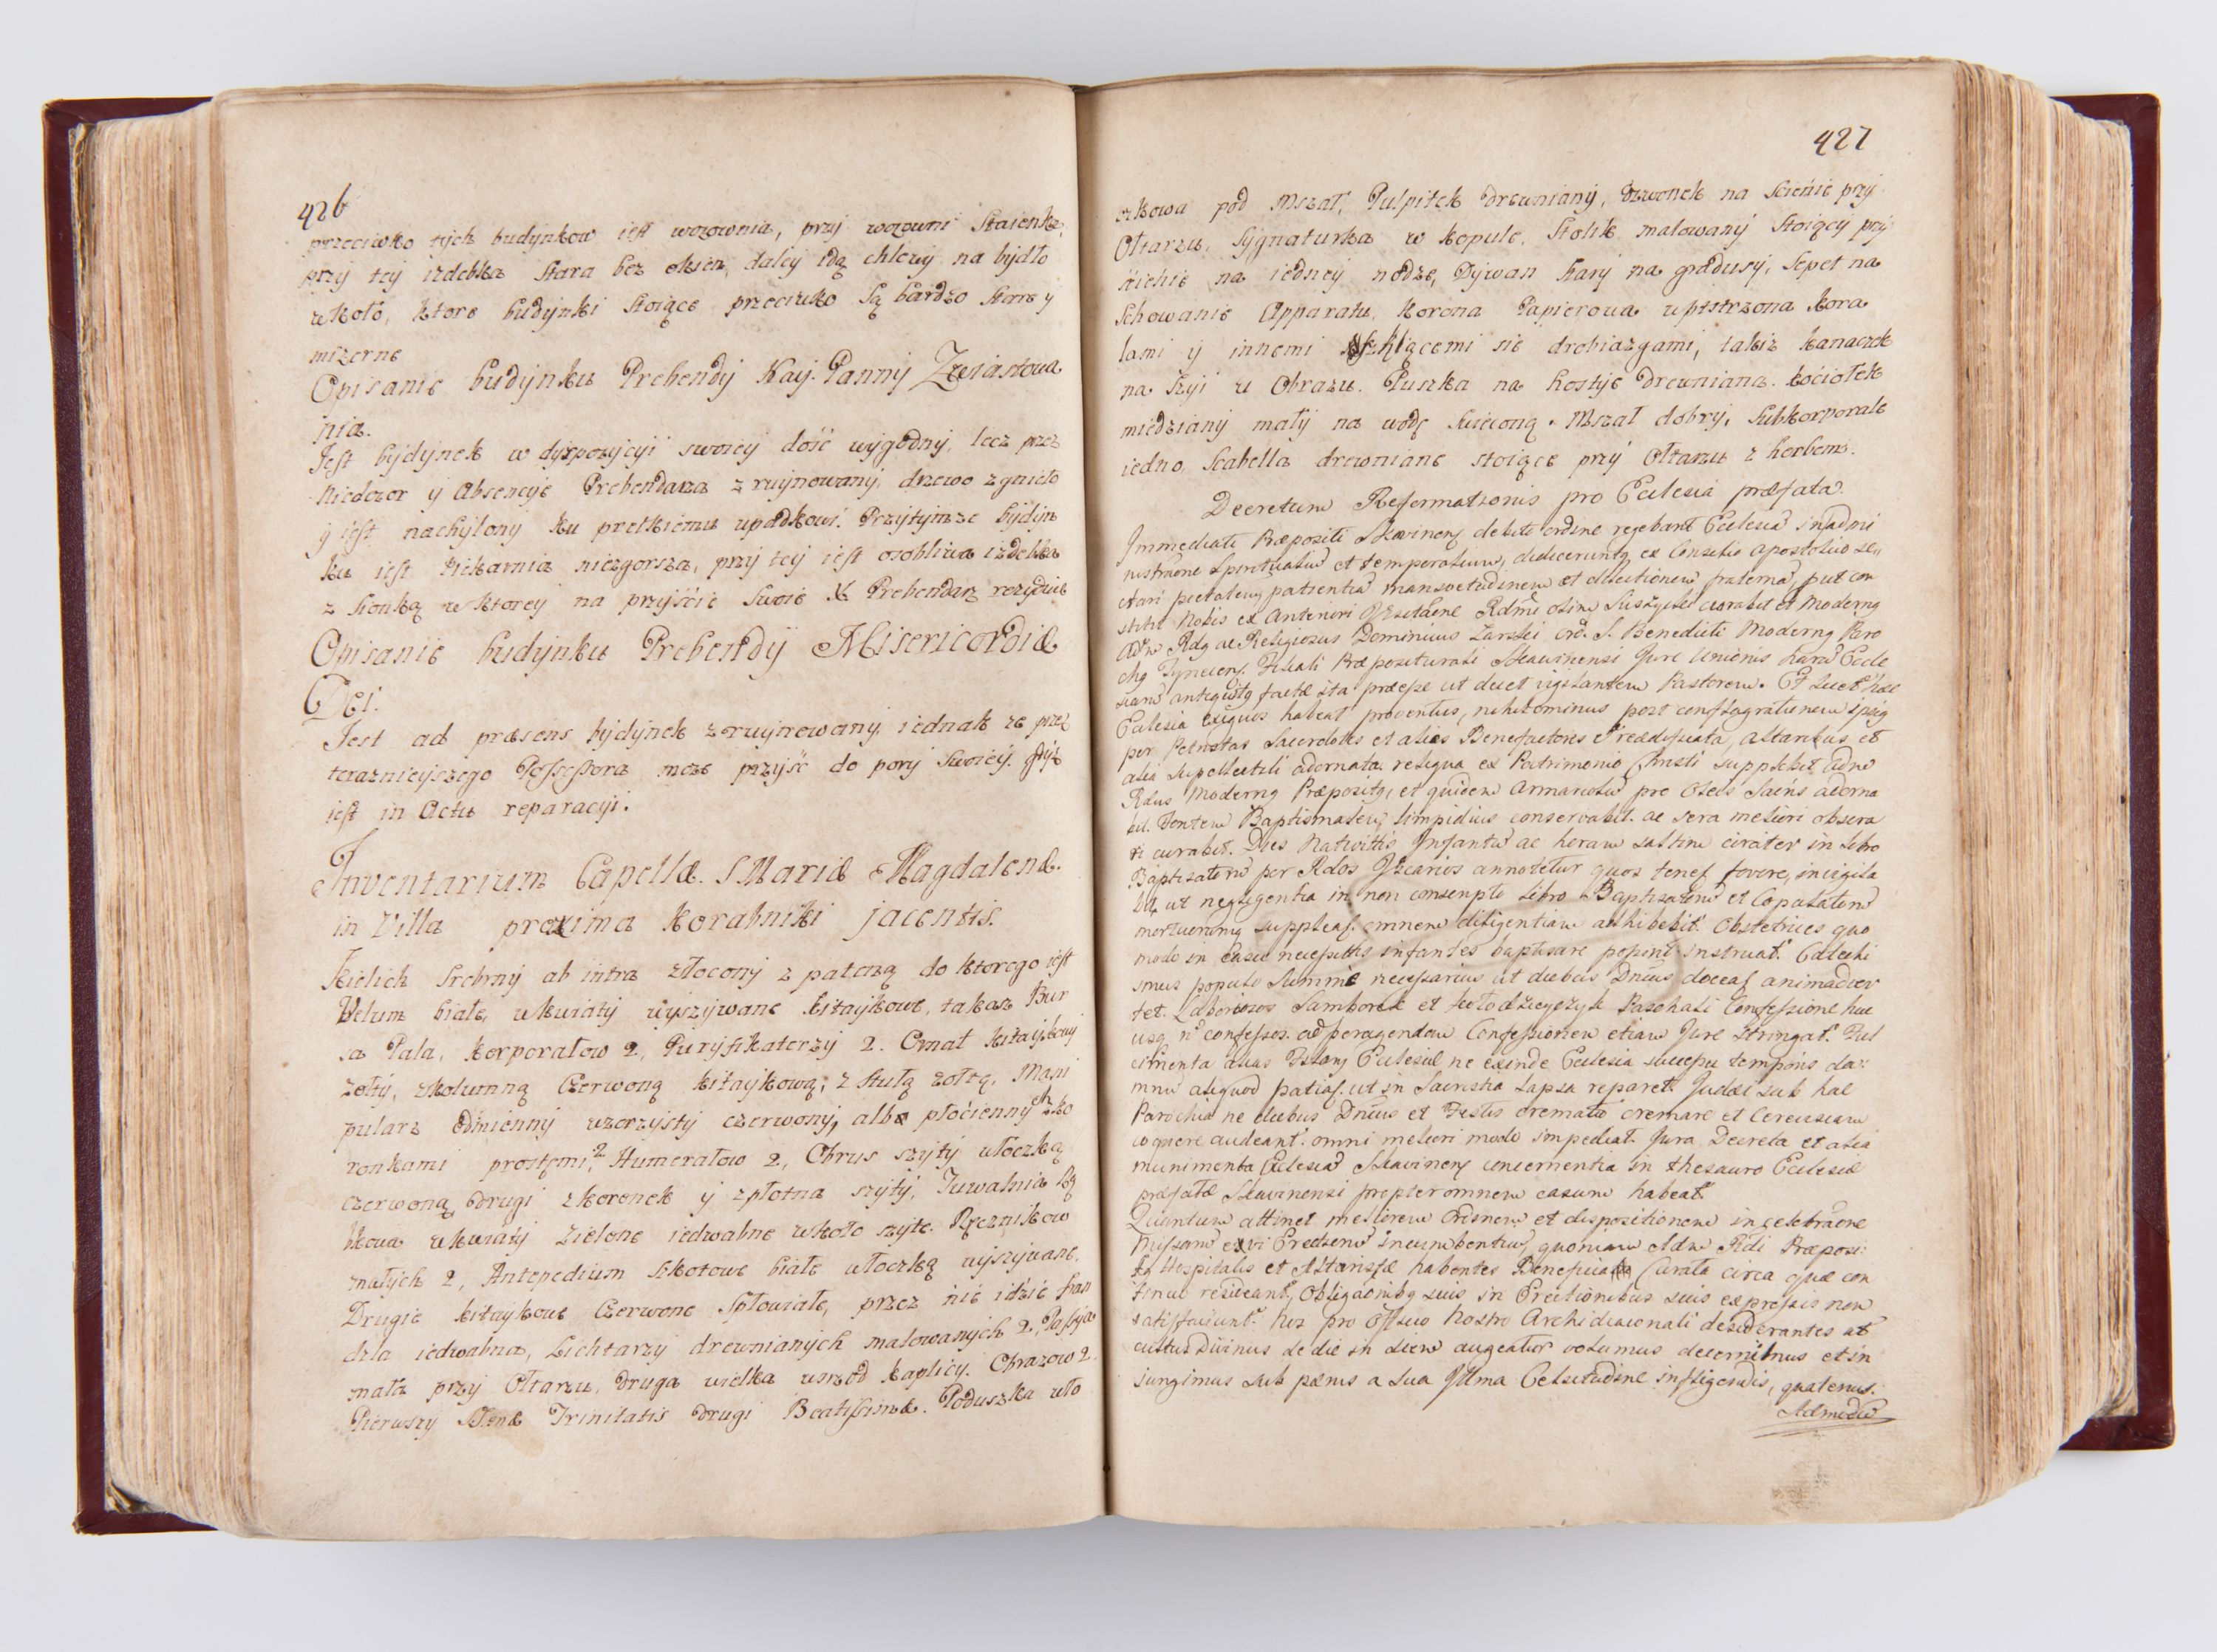 426
przeciwko tych budynkow iest wozownia, przy wozowni Staienka,
przy tey izdebka Stara bez okien, daley idą chlewy na bydło
wkoło, ktore budynki Stoiące przeciwko Są bardzo Stare y
mizerne
Opisanie budynku Prebendy Nay. Panny Zwiastowa
nia.
Jest bydynek w dyspozycyi swoiey dość wygodny, lecz przez
Niedozor y Absencyę Prebendarza zruynowany, drzewo zgnieło
y iest nachylony ku prętkiemu upadkowi. Przytymze bydyn
ku iest Piekarnia niezgorsza, przy tey iest osobliwa izdebka
z Sionką w ktorey na przyiście Swoie X Prebendarz rezyduie
Opisanie budynku Prebendy Misericordiæ
Dei.
Jest ad præsens bydynek zruynowany, iednak ze przez
teraznieyszego Possessora moze przyiść do pory Swoiey. gdyż
iest in Actu reparacyi.
Inventarium Capellæ. S Mariæ Magdalenæ.
in Villa proxima Korabniki jacentis.
Kielich Srebrny ab intra złocony z pateną do ktorego iest
Velum białe, wkwiaty wyszywane kitaykowe, takaz Bur
sa Pala, Korporałow 2, Puryfikaterzy 2. Ornat kitaykowy
zołty, zkolumną Czerwoną kitaykową, z Stułą zołtą, Mani
pularz odmienny wzorzysty czerwony, alba płocienny ch zko
ronkami prostemi, 2 Humerałow 2, Obrus szyty włoczką
czerwoną, Drugi zkoronek y zpłotna szyty, Tuwalnia
wkwiaty Zielone iedwabne wkoło szyte. Ręcznikow
małych 2, Antepedium białe włoczką wyszywane,
Drugie kitaykowe Czerwone Spłowiałe, przez nie idzie fran
dzla iedwabna, Lichtarzy drewnianych malowanych 2, Passyia
mała przy Ołtarzu, druga wielka wszrod kaplicy. Obrazow 2.
Pierwszy SSmæ Trinitatis drugi Beatissimæ. Poduszka wło
427
czkowa pod Mszał, Pulpitek drewniany, dzwonek na Scienie przy
Ołtarzu, Sygnaturka w kopule, Stolik malowany Stoiący przy
scienie na iedney nodze, Dywan Stary na gradusy, Sepet na
Schowanie Apparatu, Korona Papierowa upstrzona kora
lami y innemi szklącemi sie drobiazgami, takiz kanaczek
na szyi u Obrazu. Puszka na hostye drewniana. kociołek
miedziany mały na wodę Swięconą. Mszał dobry, Subkorporale
iedno, Scabella drewniane stoiące przy Ołtarzu z herbem.
Decretum Reformationis pro Ecclesia præfata.
Immediati Præpositi Skavinens debito ordine regebant Ecclesiã in admi
nistraõne Spiritualiũ et temporalium, didicerunt ex Consilio Apostolico se
ctari pietatem, patientiã mansvetudinem et dilectionem fraternã, put con
stitit Nobis ex Anteriori Visitãone Rdmi olim et Moderng
Adm Rdg ac Religiosus Dominicus Zarski Ord. S. Benedicti Moderng Paro
chg Tynecens. Filiali Præpositurali Skawinensi Jure Unionis hanc Eccle
siam antiquitg factæ ita præesse ut decet vigilantem Pastorem. Et licet hæc
Ecclesia exiguos habeat proventus, nihilominus post conflagrationem ipsig
per Sacerdotes et alios Benefactores reædificata, altaribus et
alia supellectili adornata, reliqua ex Patrimonio Christi supplebit Adm
Rdus Moderng Præpositg, et quidem Armariolũ pro Oleis Sacris adorna
bit. Fontem Baptismalem limpidius conservabit ac sera meliori obsera
ri curabit. Dies Nativitis Infantũ ac horam saltim circiter in Libro
Baptisatorũ per Rdos Vicarios annotetur
ut negligentia in non conscripto Libro Baptisatorũ et Copulatorũ
mortuorumq suppleat. omnem diligentiam adhibebit. Obstetrices quo
modo in Casu necessitis infantes baptisare possint instruat. Catechi
smus populo Summe necessarius ut diebus Dnicis doceat. animadver
tet. Laboriosos Samborek et Kołodzieyczyk Paschali Confessione huc
usq nõ confessos. ad peragendam Confessionem etiam Jure Stringat.
Ecclesiæ ne exinde Ecclesia successu temporis da
mnũ aliquod patiat. ut in Sacristia lapsa reparet. Judæi sub hac
Parochia ne diebus Dnicis et Festis crematũ cremare et Cerevisiam
coquere audeant. omni meliori modo impediat. Jura Decreta et alia
munimenta Ecclesiã Skavinens concernentia in thesauro Ecclesiæ
præfatæ Skavinensi propter omnem casum habeat.
Quantum attinet meliorem Ordinem et dispositionem in celebraõne
Missarũ ex vi Erectionũ incumbentiũ, quoniam Adm Rdi Præposi
ti Hospitalis et Altaristæ habentes Beneficia Curata circa quæ con
tinuo resideant, Obligaõnibg suis in Erectionibus suis expressis non
satisfaciunt. Nos pro Officio Nostro Archidiaconali desiderantes ut
cultus Divinus de die in diem augeatur volumus decernimus et in
jungimus sub pænis a Sua Illma Celsitudine infligendis, quatenus.
Admodũ